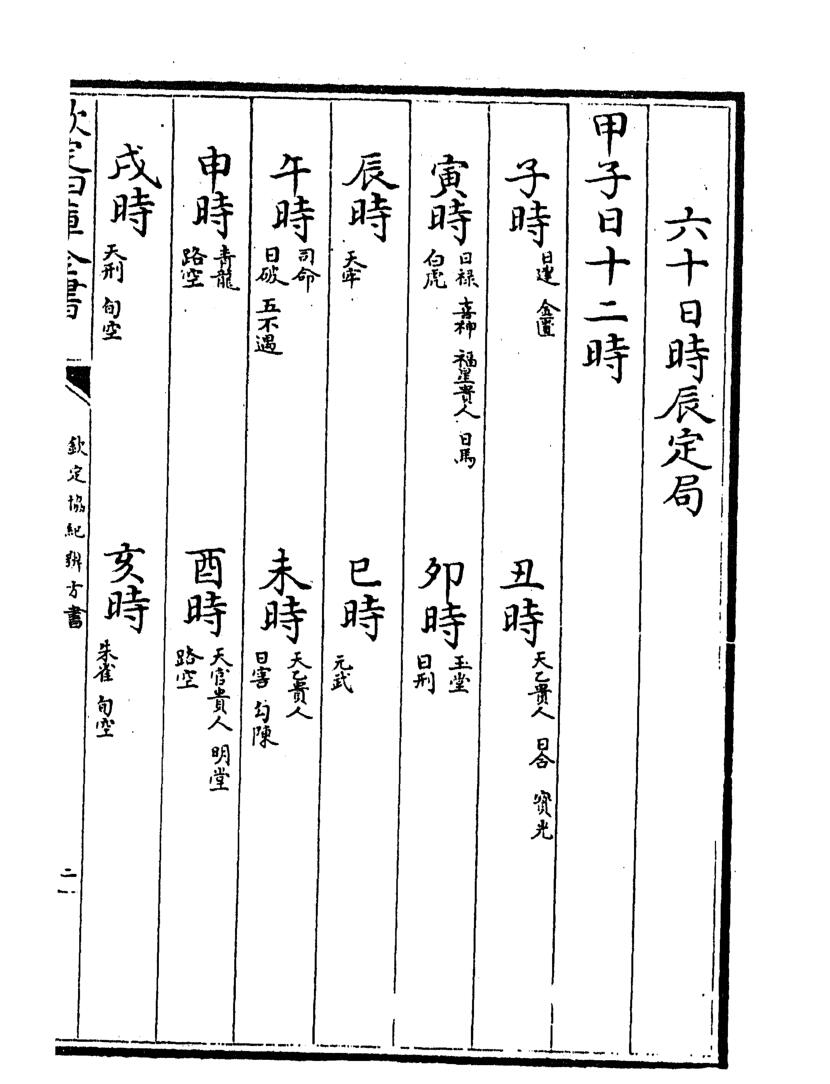 六十日時辰定局
甲子日十二時
子時 日建 金匱
丑時 天乙貴人 日合 寳光
寅時 日禄 喜神 福星貴人 日馬 白虎
卯時 玉堂 日刑
辰時 天牢
巳時 元武
午時 司命 日破 五不遇
未時 天乙貴人 日害 勾陳
申時 青龍 路空
酉時 天官貴人 明堂 路空
戌時 天刑 旬空
亥時 朱雀 旬空
欽定四庫全書
欽定協紀辨方書
二